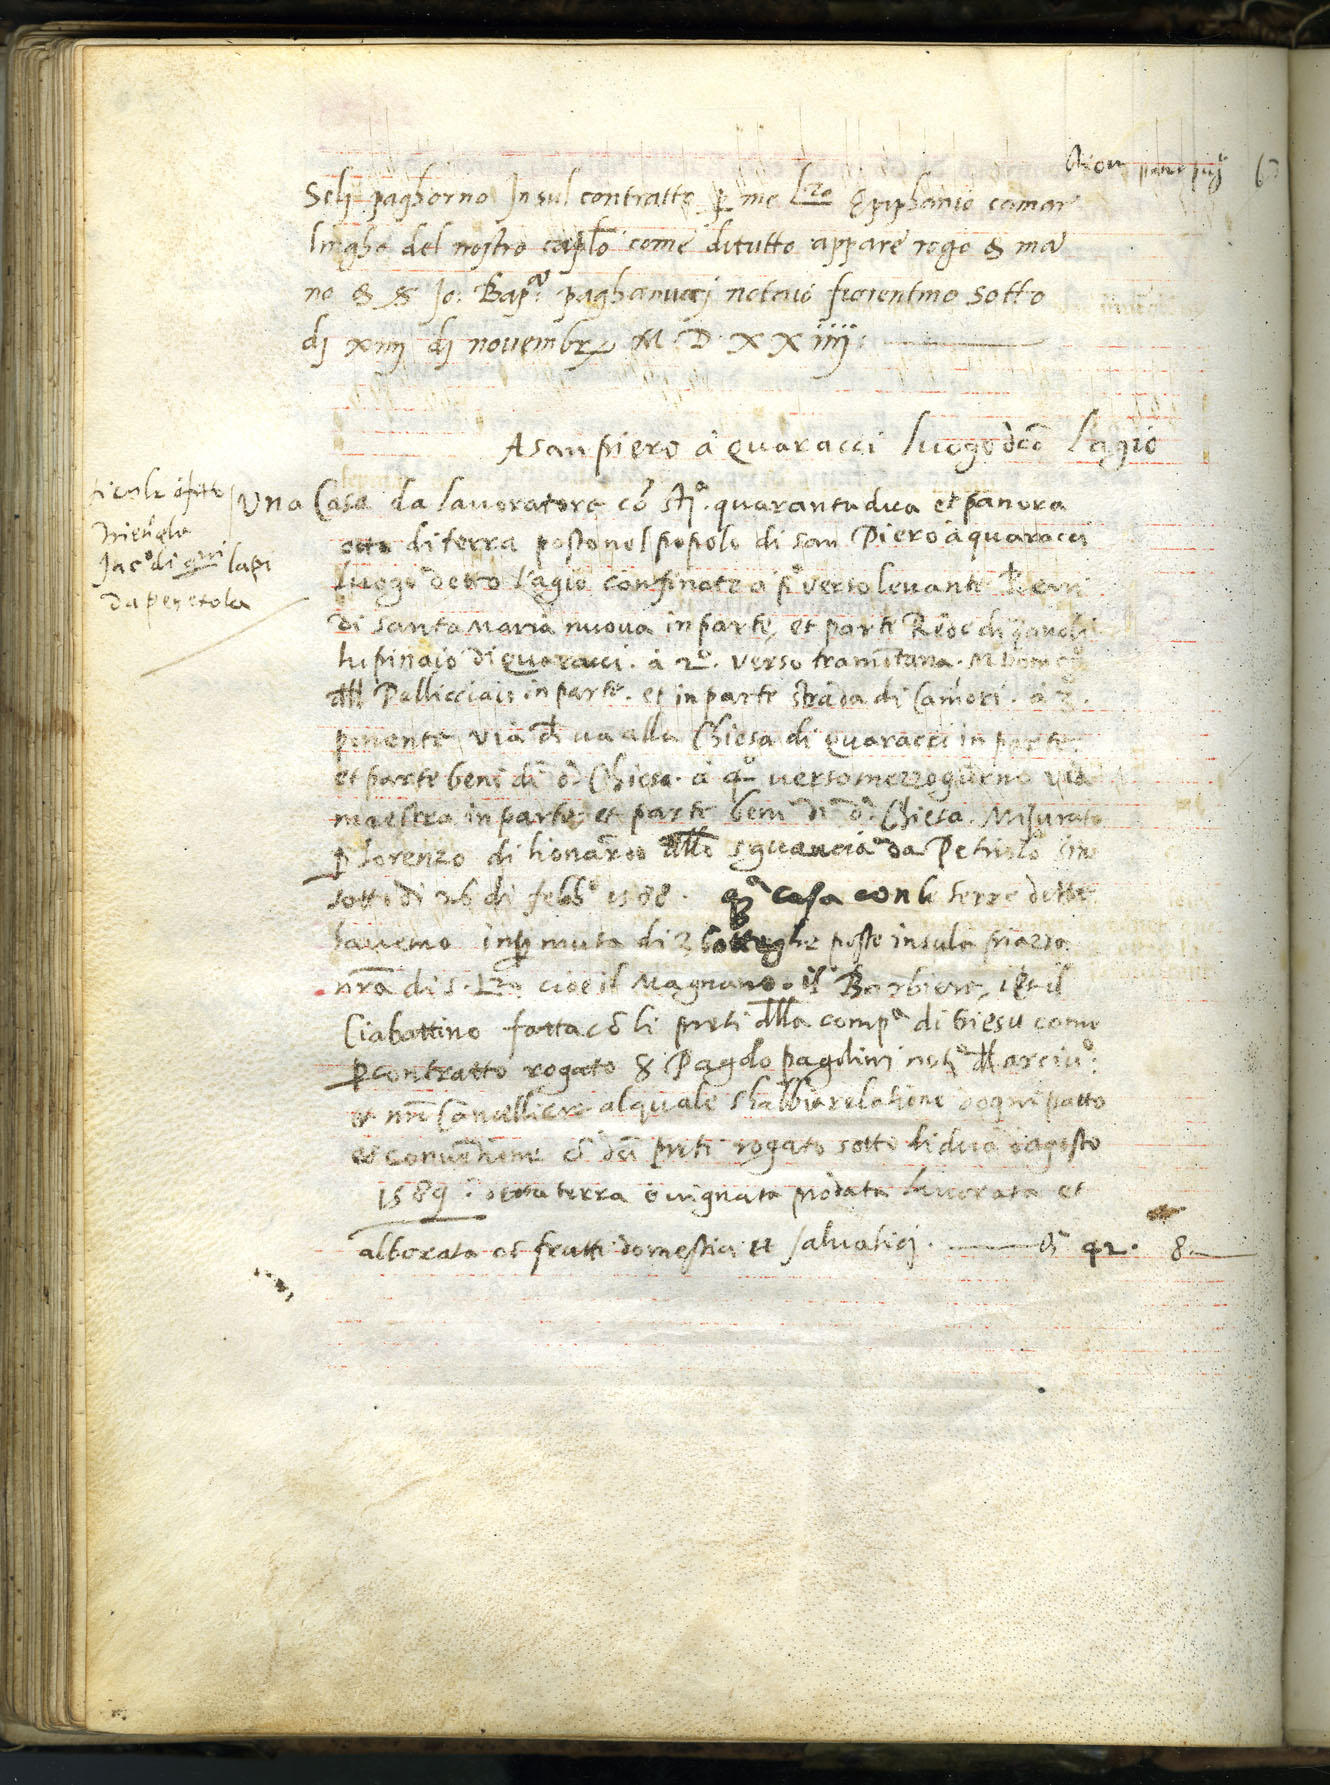 Selj paghorno Insul contratto p me Lzo Epiphanio camar
lingho del nostro caplo come ditutto appare rogo & ma
no & S Jo: Bapa paghanucci notaio fiorentino sotto
dj xiiij dj novembre M D X X iiij
A san piero à Quaracci luogo dco Lagio
tienla afitto
Michela
Jaco di Gni lapi
da peretola
Una Casa da lavoratore cō stia. quarantadua et panora
otto di terra posto nel popolo di san Piero à quaracci
luogo detto l'agio confinate a po verso levante Beni
di santa Maria nuova in parte, et parte Rede di zanobi
lupinaio di Quaracci. à 2o. verso tramōtana. M Domco
dll Pellicciaio in parte. et in parte strada di Camori. à 3.
ponente via ch va alla Chiesa di Quaracci in parte
et parte beni di da Chiesa. à 4o verso mezzogiorno via
maestra in parte et parte beni di da Chiesa. Misurato
p lorenzo di lionardo dllo sguancia da Petriolo
sotto dì 26 di febbo 1588. qa casa con le terre dette
havemo in pmuta di 3 botteghe poste in sula piazza
nra di S. Lzo cioè il Magnano. il Barbiere, et il
Ciabattino fatta cō li preti dlla compa di Giesu come
p contratto rogato & Pagolo pagolini noto dll arcivo:
et nro Cancelliere al quale s'habbia relatione d ogni patto
et convētione cō dti preti rogato sotto li dua d agosto
1589. detta terra è vignata prodata lavorata et
alberata cō frutti domestici et salvatici. 42. 8.